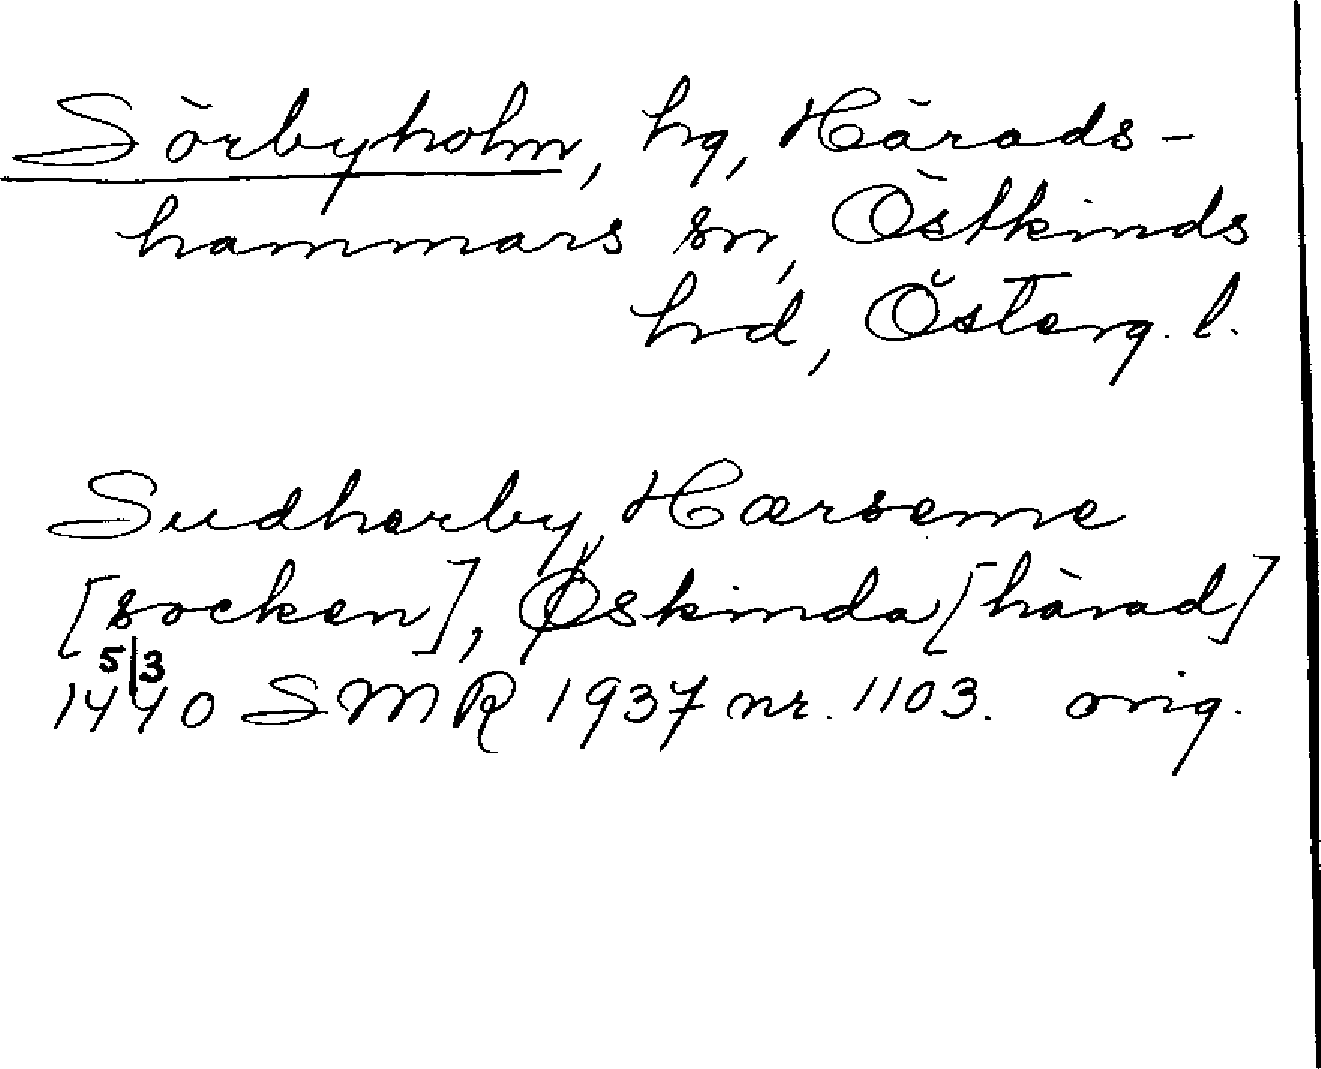 Sörbyholm, hg, Härads-
hammars sn, Östkinds
hrd, Österg. l.
Sudherby, Hærseme
[socken], Øskinda [härad]
5/3
1440 SMR 1937 nr. 1103. orig.